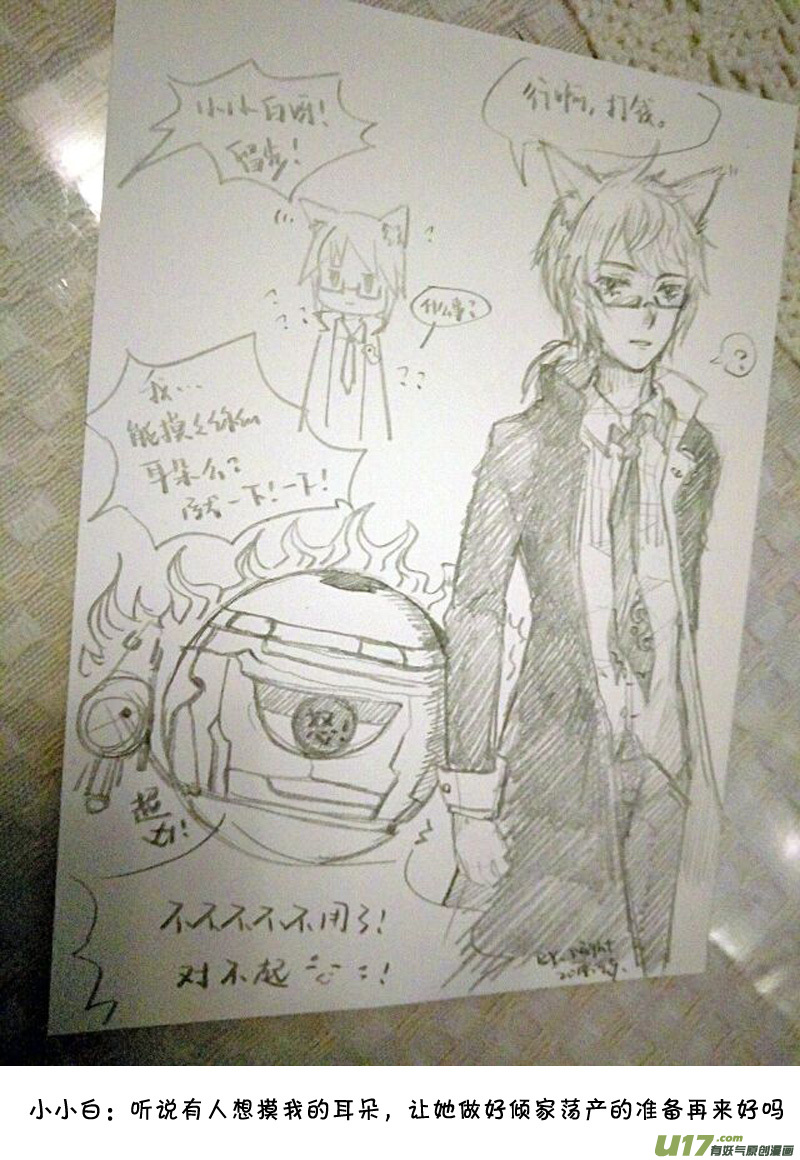 小小白呀！
留步！
行啊，打钱。
什么事？
？
我…
能摸之你的
耳朵么？
就一下！一下！
怒！
超
凶！
不不不不不用了！
对不起
小小白：听说有人想摸我的耳朵，让她做好倾家荡产的准备再来好吗
U17.com
有妖气原创漫画